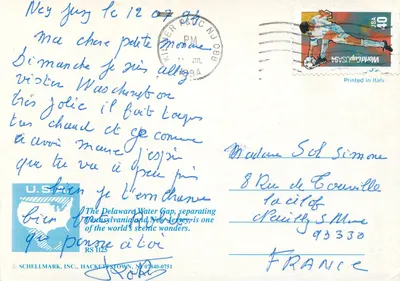 Ney Jersy le 12 07 94
Ma chere petite
Dimanche je suis allé
visiter Waschington
très jolie il fait toujours
très chaud et je comme
a avoir marre j'espère
que tu va à peu près
bien je t'embrasse
bien
qui pense à toi
KILMER P&DC NJ 088
PM
1994
WorldCupUSA94
USA 40
Printed in Italy
Madame Sol Simone
8 Rue de Trouville
Neuilly S Marne
93330
FRANCE
U.S.A.
The Delaware Water Gap, separating
Pennsylvania and New Jersey, is one
of the world's scenic wonders.
SCHELLMARK, INC., HACKETTSTOWN, NJ 07840-0751